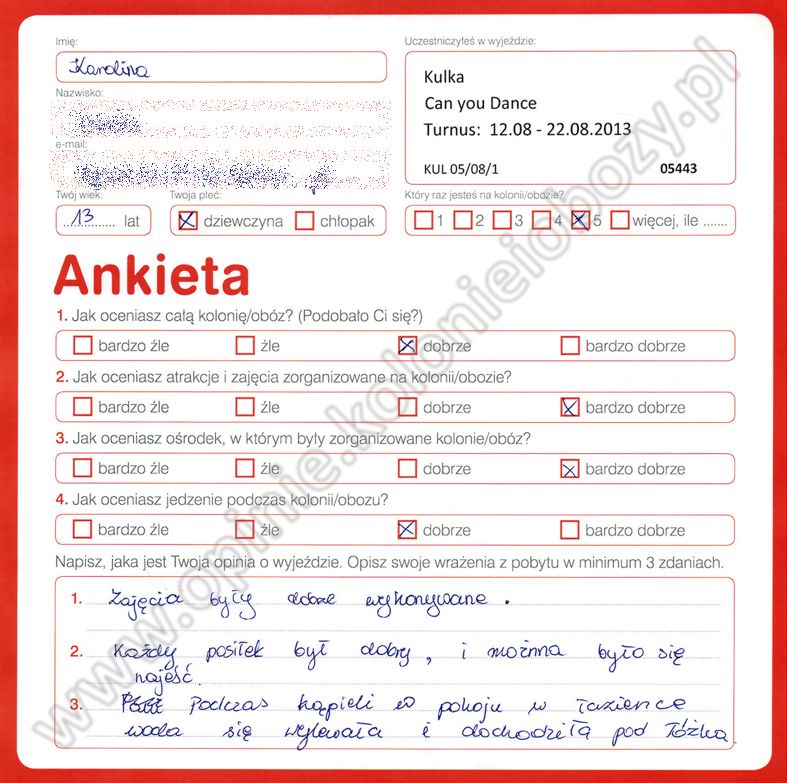 Imię:
Karolina
Nazwisko:
e-mail:
Twój wiek:
13 lat
Twoja płeć:
dziewczyna chłopak
Uczestniczyłeś w wyjeździe:
Kulka
Can you Dance
Turnus: 12.08 - 22.08.2013
KUL 05/08/1 05443
Który raz jesteś na kolonii/obozie?
1 2 3 4 5 więcej, ile .......
Ankieta
1. Jak oceniasz całą kolonię/obóz? (Podobało Ci się?)
bardzo źle źle dobrze bardzo dobrze
2. Jak oceniasz atrakcje i zajęcia zorganizowane na kolonii/obozie?
bardzo źle źle dobrze bardzo dobrze
3. Jak oceniasz ośrodek, w którym były zorganizowane kolonie/obóz?
bardzo źle źle dobrze bardzo dobrze
4. Jak oceniasz jedzenie podczas kolonii/obozu?
bardzo źle źle dobrze bardzo dobrze
Napisz, jaka jest Twoja opinia o wyjeździe. Opisz swoje wrażenia z pobytu w minimum 3 zdaniach.
1. Zajęcia były dobrze wykonywane.
2. Każdy posiłek był dobry, i możnna było się
najeść.
3. Podczas kąpieli w pokoju w łazience
woda się wylewała i dochodziła pod łóżka.
www.opinie.kolonieiobozy.pl